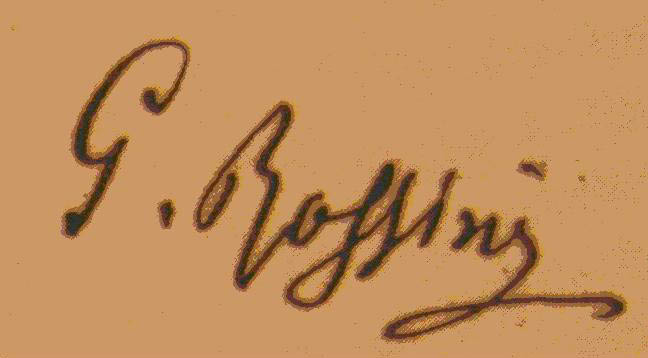 G. Rossini